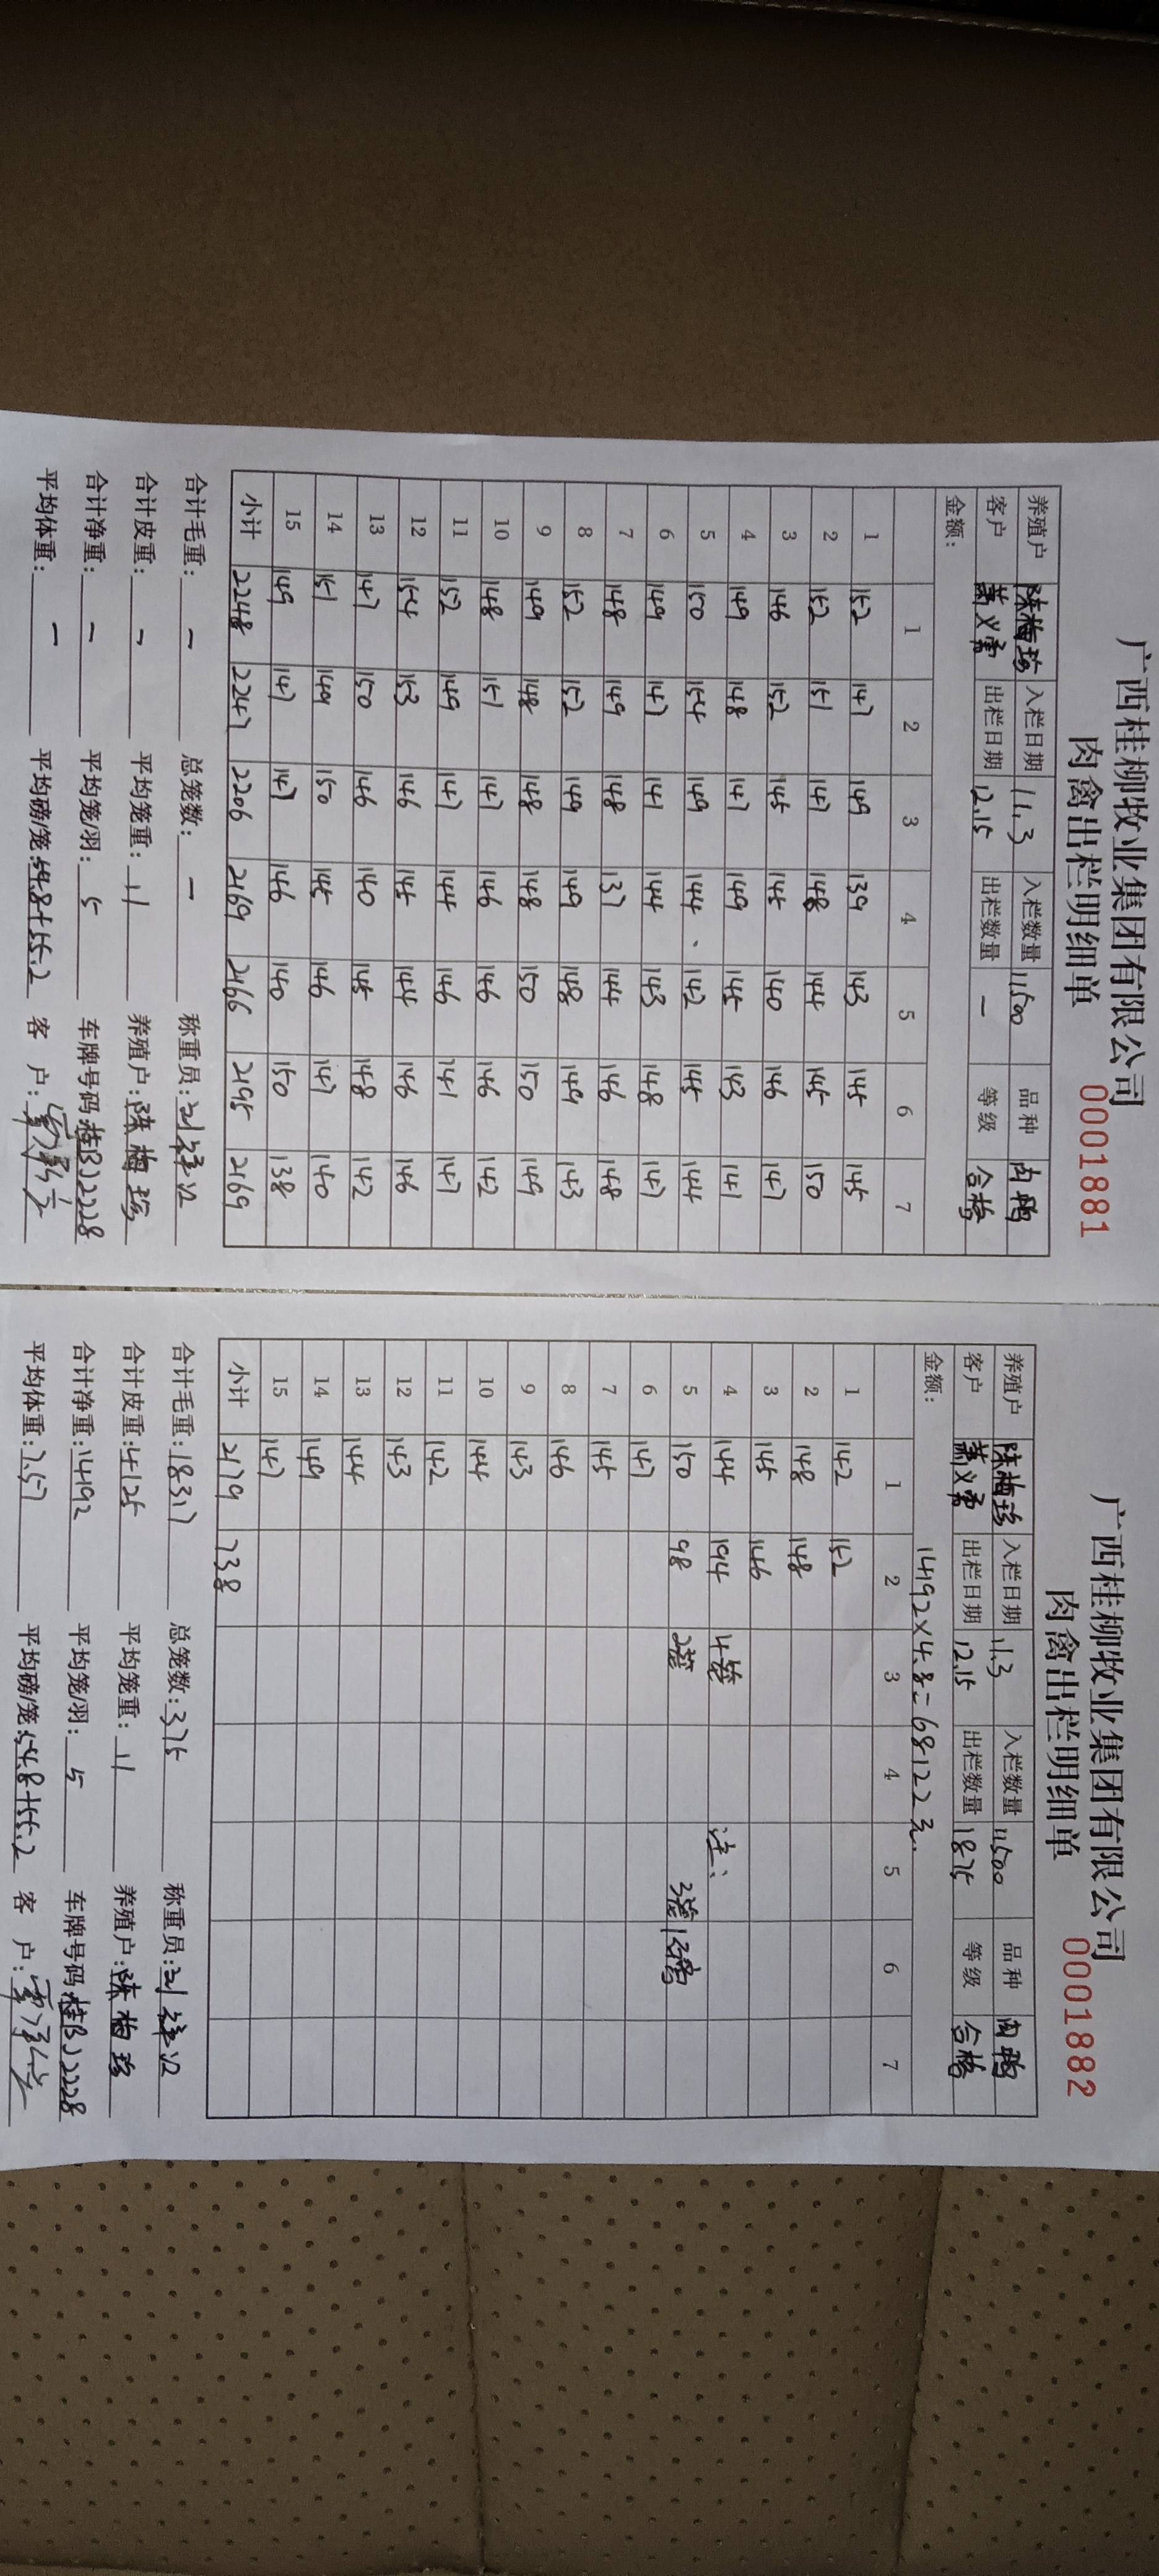 广西桂柳牧业集团有限公司
肉禽出栏明细单 0001881
养殖户 陈梅珍 入栏日期 11.3 入栏数量 11500 品种 肉鸭
客户 出栏日期 12.15 出栏数量 一 等级 合格
金额：
1 2 3 4 5 6 7
1 152 147 149 139 143 145 145
2 152 151 147 148 144 145 150
3 146 152 145 145 140 146 147
4 149 148 147 149 145 143 141
5 150 154 149 144 142 145 144
6 149 147 141 144 143 148 147
7 148 149 148 137 144 146 148
8 152 152 149 149 148 149 143
9 149 148 148 148 150 150 149
10 148 151 147 146 146 146 142
11 152 149 147 144 146 141 147
12 154 153 146 145 144 146 146
13 147 150 146 140 145 148 142
14 151 149 150 145 146 147 140
15 149 147 147 146 140 150 138
小计 2248 2247 2206 2169 2166 2195 2169
合计毛重：一 总笼数：一 称重员：
合计皮重：一 平均笼重：11 养殖户：陈梅珍
合计净重：一 平均笼/羽：5 车牌号码：桂BJ2228
平均体重：一 平均磅/笼：54.8+55.2 客 户：
广西桂柳牧业集团有限公司
肉禽出栏明细单 0001882
养殖户 陈梅珍 入栏日期 11.3 入栏数量 11500 品种 肉鸭
客户 出栏日期 12.15 出栏数量 1875 等级 合格
金额： 14192×4.8=68122元.
1 2 3 4 5 6 7
1 142 152
2 148 148
3 145 146
4 144 194 4笼 注：
5 150 98 2笼 3笼1磅
6 147
7 145
8 146
9 143
10 144
11 142
12 143
13 144
14 149
15 147
小计 2179 738
合计毛重：18317 总笼数：375 称重员：
合计皮重：4125 平均笼重：11 养殖户：陈梅珍
合计净重：14192 平均笼/羽：5 车牌号码：桂BJ2228
平均体重：7.57 平均磅/笼：54.8+55.2 客 户：